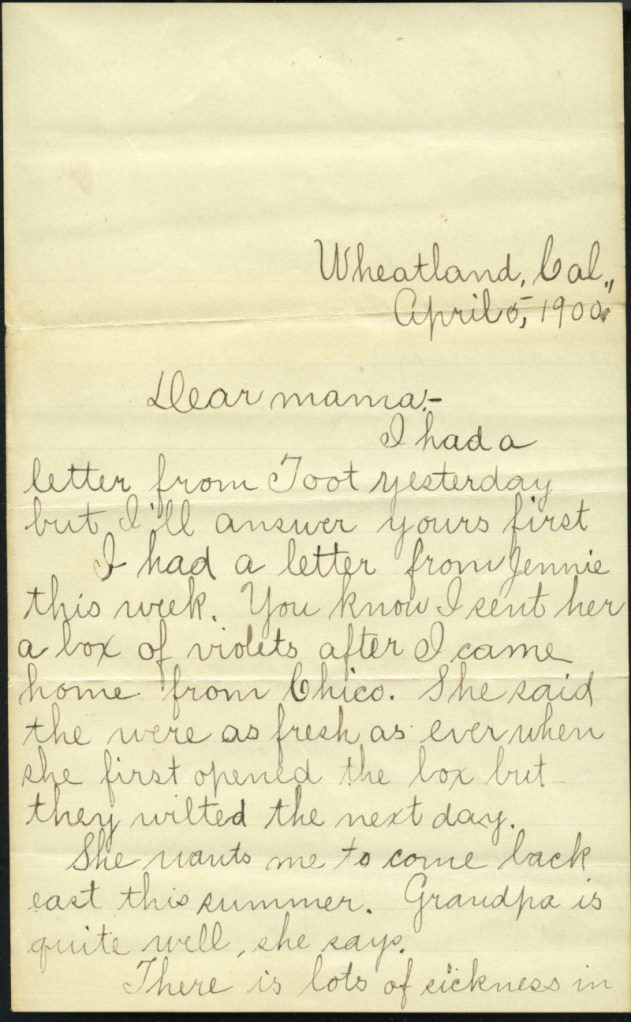 Wheatland, Cal.,
April 5, 1900.
Dear mama:-
I had a
letter from Toot yesterday
but I'll answer yours first
I had a letter from Jennie
this week. You know I sent her
a box of violets after I came
home from Chico. She said
the were as fresh as ever when
she first opened the box but
they wilted the next day.
She wants me to come back
east this summer. Grandpa is
quite well, she says.
There is lots of sickness in